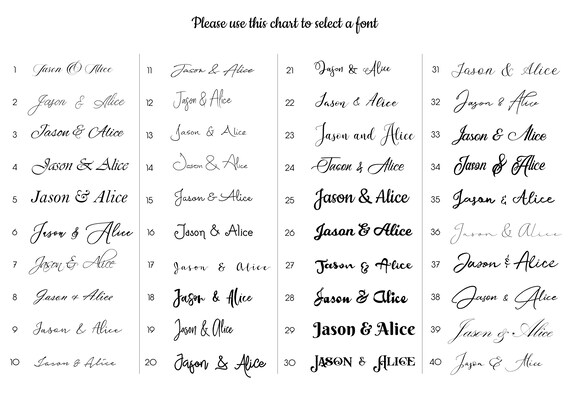 Please use this chart to select a font
1 Jason & Alice
2 Jason & Alice
3 Jason & Alice
4 Jason & Alice
5 Jason & Alice
6 Jason & Alice
7 Jason & Alice
8 Jason & Alice
9 Jason & Alice
10 Jason & Alice
11 Jason & Alice
12 Jason & Alice
13 Jason & Alice
14 Jason & Alice
15 Jason & Alice
16 Jason & Alice
17 Jason & Alice
18 Jason & Alice
19 Jason & Alice
20 Jason & Alice
21 Jason & Alice
22 Jason & Alice
23 Jason and Alice
24 Jason & Alice
25 Jason & Alice
26 Jason & Alice
27 Jason & Alice
28 Jason & Alice
29 Jason & Alice
30 JASON & ALICE
31 Jason & Alice
32 Jason & Alice
33 Jason & Alice
34 Jason & Alice
35 Jason & Alice
36 Jason & Alice
37 Jason & Alice
38 Jason & Alice
39 Jason & Alice
40 Jason & Alice